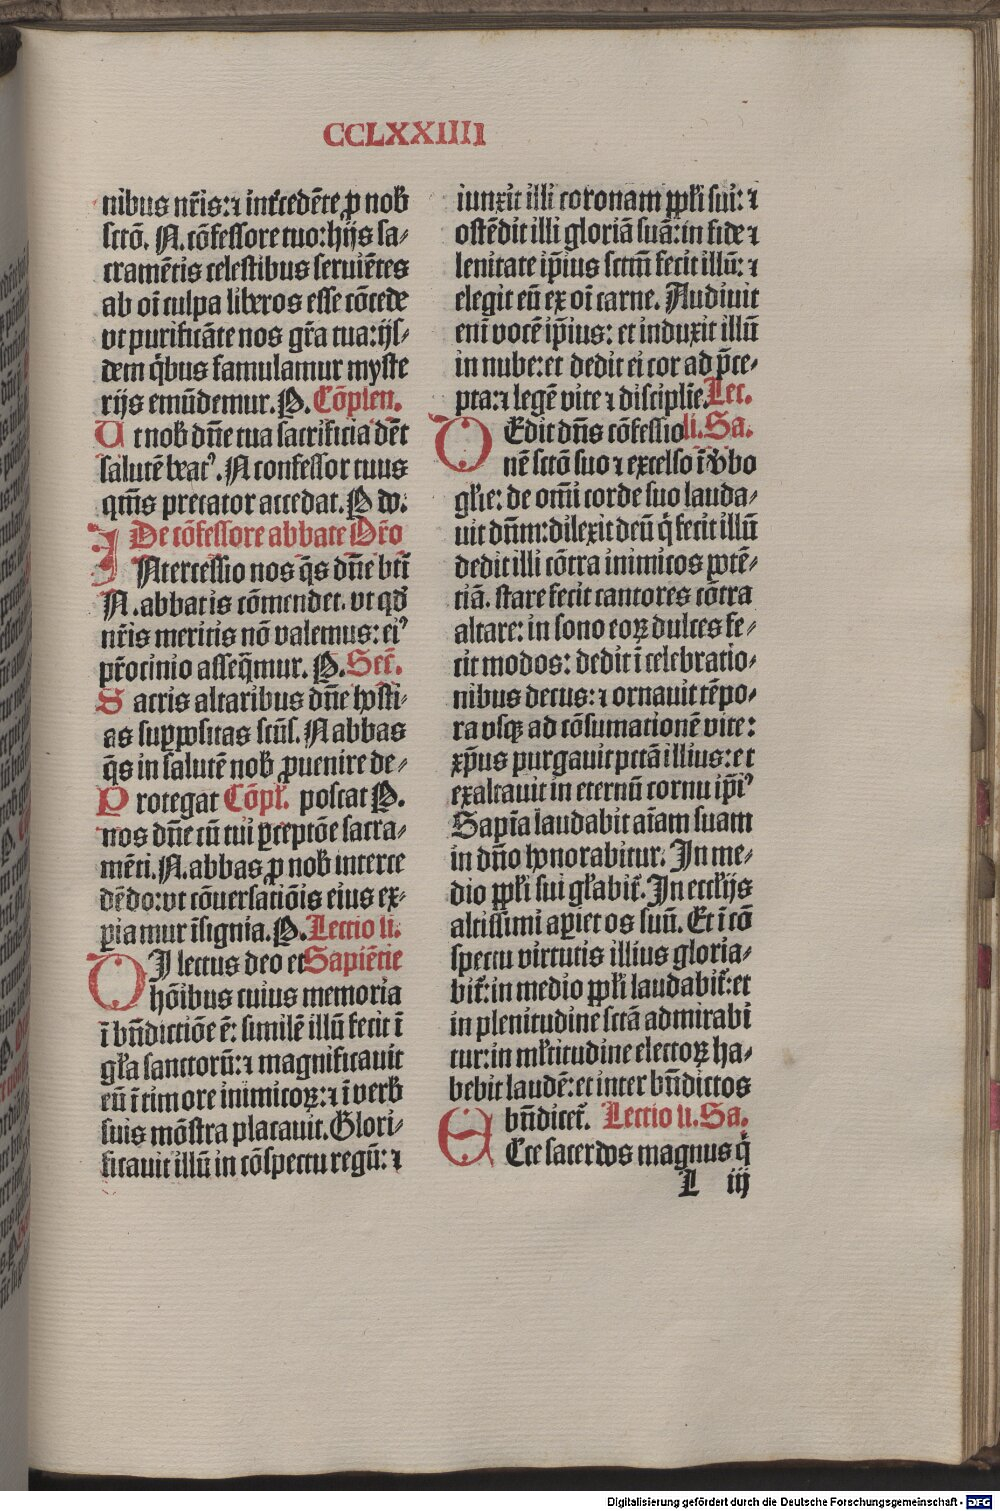 CCLXXIIII
nibus nr̄is: ⁊ int̄cedēte ꝓ nob̄
sctō. N. cōfessore tuo: hijs sa-
cramētis celestibus seruiētes
ab oī culpa liberos esse cōcede
vt purificāte nos gr̄a tua: ijs-
dem q̄bus famulamur myste
rijs emūdemur. P. Cōplen.
Ut nob̄ dn̄e tua sacrificia dēt
salutē beatꝰ. N confessor tuus
qm̄s precator accedat. P do:
De cōfessore abbate Or̄o
INtercessio nos q̄s dn̄e bt̄i
N. abbatis cōmendet. vt qd̄
nr̄is meritis nō valemus: eiꝰ
pr̄ocinio asseq̄mur. P. Secr̄.
Sacris altaribus dn̄e hosti-
as suꝑpositas scūs. N abbas
q̄s in salutē nob̄ ꝓuenire de-
Protegat Cōpl̄. poscat P.
nos dn̄e cū tui ꝑceptōe sacra-
mēti. N. abbas ꝓ nob̄ interce
dēdo: vt cōuersatiōis eius ex-
ꝑiamur īsignia. P. Lectio li.
DIlectus deo et Sapiētie
hōibus cuius memoria
ī bn̄dictiōe ē: similē illū fecit ī
gl̄a sanctorū: ⁊ magnificauit
eū ī timore inimicoꝝ: ⁊ ī verb̄
suis mōstra placauit. Glori-
ficauit illū in cōspectu regū: ⁊
iunxit illi coronam ppl̄i sui: ⁊
ostēdit illi gloriā suā: in fide ⁊
lenitate ip̄ius sctm̄ fecit illū: ⁊
elegit eū ex oī carne. Audiuit
enī vocē ip̄ius: et induxit illū
in nube: et dedit ei cor ad p̄ce-
pta: ⁊ legē vite ⁊ disciplīe. Lec.
DEdit dn̄s cōfessio li. Sa.
nē sctō suo ⁊ excelso ī v̄bo
gl̄ie: de om̄i corde suo lauda-
uit dn̄m: dilexit deū q̄ fecit illū
dedit illi cōtra inimicos potē-
tiā. stare fecit cantores cōtra
altare: in sono eoꝝ dulces fe-
cit modos: dedit ī celebratio-
nibus decus: ⁊ ornauit tēpo-
ra vsqꝫ ad cōsumationē vite:
xp̄us purgauit pctā illius: et
exaltauit in eternū cornu ip̄iꝰ
Sapīa laudabit aīam suam
in dn̄o honorabitur. In me-
dio ppl̄i sui gl̄abit̄. In eccl̄ijs
altissīmi aꝑiet os suū. Et ī cō
spectu virtutis illius gloria-
bit̄: in medio ppl̄i laudabit̄: et
in plenitudine sctā admirabi
tur: in ml̄titudine electoꝝ ha-
bebit laudē: et inter bn̄dictos
bn̄dicet̄. Lectio li. Sa.
ECce sacerdos magnus q̄
L iij
Digitalisierung gefördert durch die Deutsche Forschungsgemeinschaft - DFG